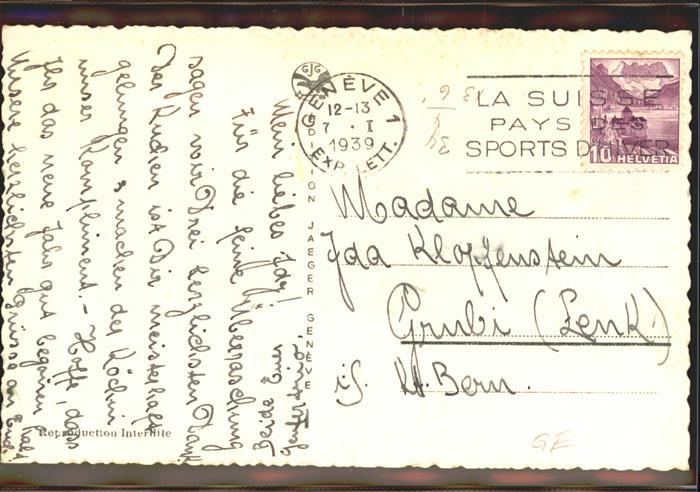 Mein liebes Idy!
Für die feine Überraschung
sagen wir Drei herzlichsten Dank
Der Kuchen ist Dir meisterhaft
gelungen & machen der Köchin
unser Kompliment. - Hoffe, dass
Ihr das neue Jahr gut begonnen habt
Unsere herzlichsten Grüsse an Euch
Beide Euer
GJG
EDITION JAEGER GENÈVE
Reproduction Interdite
GENÈVE 1
12-13
7 . I
1939
EXP. LETT.
LA SUISSE
PAYS DES
SPORTS D'HIVER
10 HELVETIA
Madame
Ida Klopfenstein
Grubi (Lenk)
i/S. Kt. Bern.
GE